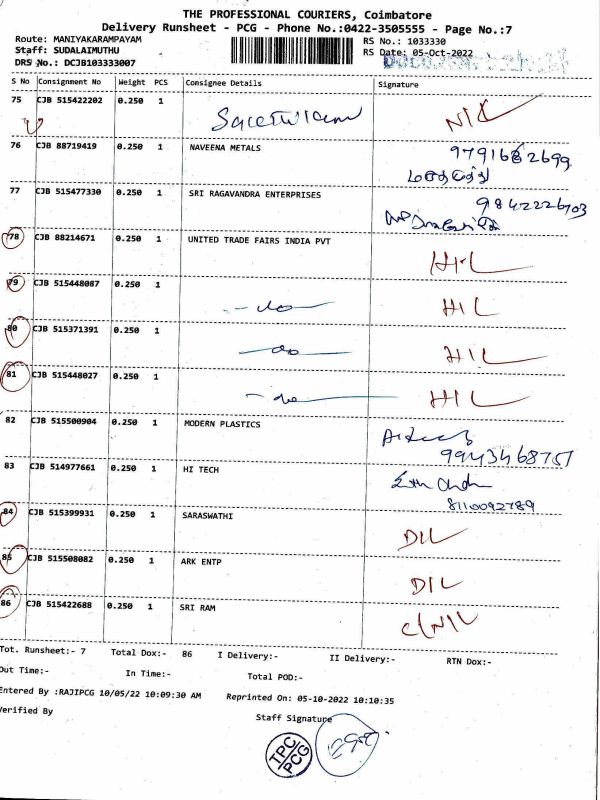 THE PROFESSIONAL COURIERS, Coimbatore
Delivery Runsheet - PCG - Phone No.:0422-3505555 - Page No.:7
Route: MANIYAKARAMPAYAM
RS No.: 1033330
Staff: SUDALAIMUTHU
RS Date: 05-Oct-2022
DRS No.: DCJB103333007
S No Consignment No Weight PCS Consignee Details Signature
75 CJB 515422202 0.250 1
76 CJB 88719419 0.250 1 NAVEENA METALS 9791682699
77 CJB 515477330 0.250 1 SRI RAGAVANDRA ENTERPRISES 9842226703
78 CJB 88214671 0.250 1 UNITED TRADE FAIRS INDIA PVT HIL
79 CJB 515448087 0.250 1 -do- HIL
80 CJB 515371391 0.250 1 -do- HIL
81 CJB 515448027 0.250 1 -do- HIL
82 CJB 515500904 0.250 1 MODERN PLASTICS
9943468751
83 CJB 514977661 0.250 1 HI TECH
8110092789
84 CJB 515399931 0.250 1 SARASWATHI DIL
85 CJB 515508082 0.250 1 ARK ENTP DIL
86 CJB 515422688 0.250 1 SRI RAM C/NIL
Tot. Runsheet:- 7 Total Dox:- 86 I Delivery:- II Delivery:- RTN Dox:-
Out Time:- In Time:- Total POD:-
Entered By :RAJIPCG 10/05/22 10:09:30 AM Reprinted On: 05-10-2022 10:10:35
Verified By
Staff Signature
TPC
PCG